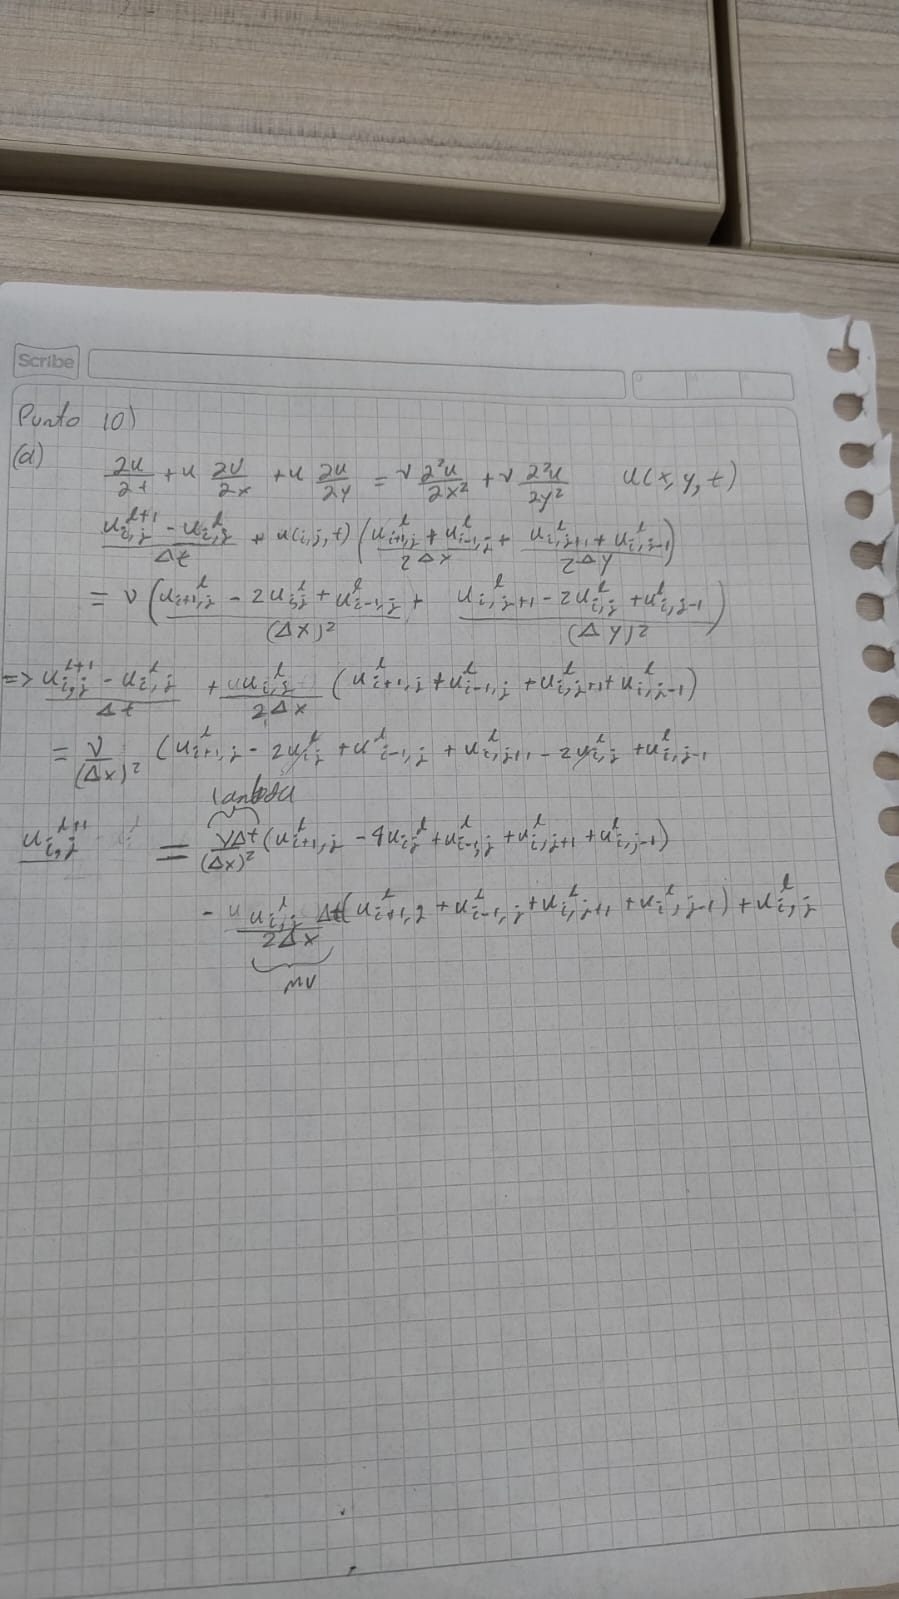 Scribe
Punto 10)
(a)
∂u/∂t + u ∂u/∂x + u ∂u/∂y = ν ∂²u/∂x² + ν ∂²u/∂y²   u(x,y,t)
(u_{i,j}^{l+1} - u_{i,j}^{l})/Δt + u(i,j,t) ((u_{i+1,j}^{l} + u_{i-1,j}^{l})/2Δx + (u_{i,j+1}^{l} + u_{i,j-1}^{l})/2Δy)
= ν ((u_{i+1,j}^{l} - 2u_{i,j}^{l} + u_{i-1,j}^{l})/(Δx)² + (u_{i,j+1}^{l} - 2u_{i,j}^{l} + u_{i,j-1}^{l})/(Δy)²)
=> (u_{i,j}^{l+1} - u_{i,j}^{l})/Δt + u_{i,j}^{l}/2Δx (u_{i+1,j}^{l} + u_{i-1,j}^{l} + u_{i,j+1}^{l} + u_{i,j-1}^{l})
= ν/(Δx)² (u_{i+1,j}^{l} - 2u_{i,j}^{l} + u_{i-1,j}^{l} + u_{i,j+1}^{l} - 2u_{i,j}^{l} + u_{i,j-1}^{l}
lambda
u_{i,j}^{l+1} = νΔt/(Δx)² (u_{i+1,j}^{l} - 4u_{i,j}^{l} + u_{i-1,j}^{l} + u_{i,j+1}^{l} + u_{i,j-1}^{l})
- u_{i,j}^{l} Δt/2Δx (u_{i+1,j}^{l} + u_{i-1,j}^{l} + u_{i,j+1}^{l} + u_{i,j-1}^{l}) + u_{i,j}^{l}
mu